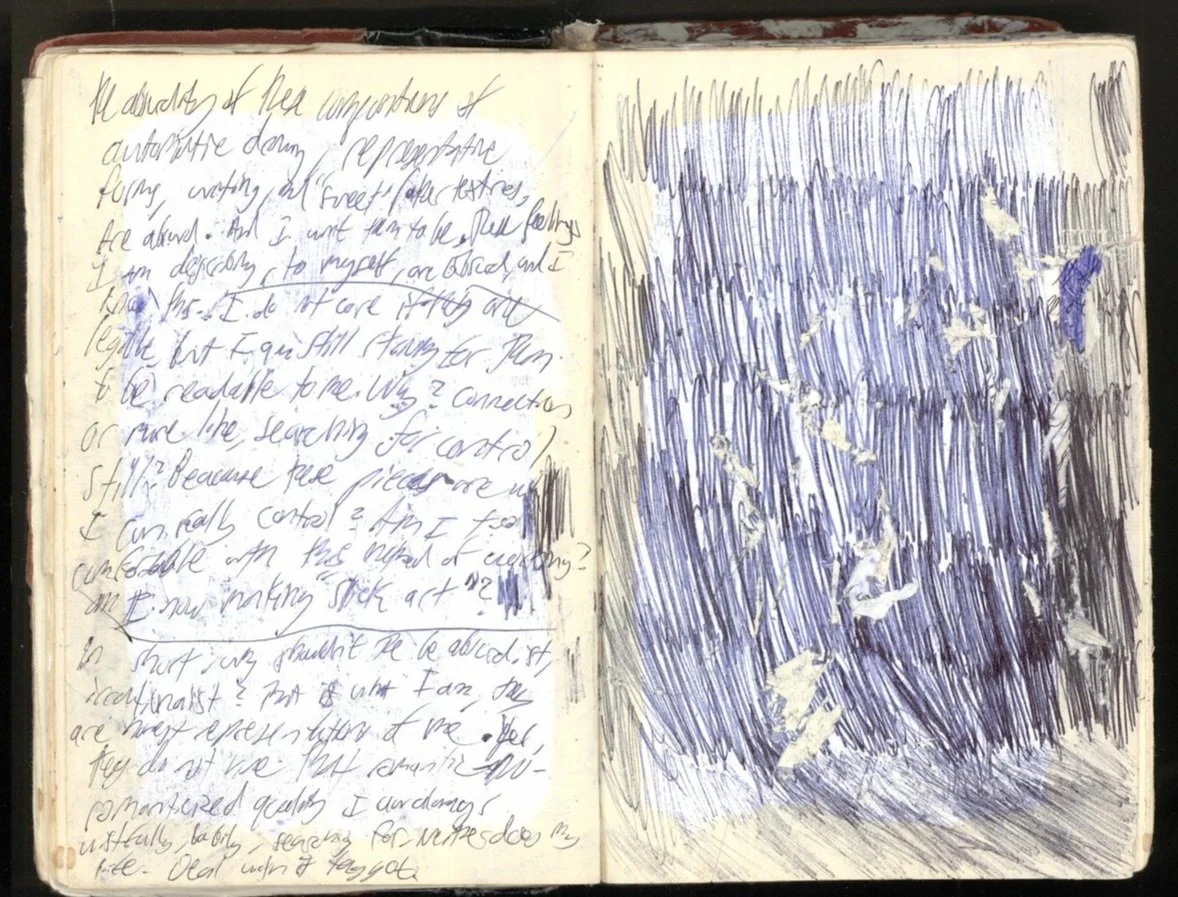 The absurdity of these compositions of
automative drawing, representative
forms, writing, and "sweet" letter textures,
Are absurd. And I want them to be. These feelings
I am describing, to myself, are absurd, and I
know this. I do not care if they are
legible but I am still striving for them
to be readable to me. Why? connection
or more like, searching for control,
still? Because these pieces are
I can really control? Am I too
comfortable with this method of working?
am I now making "slick art"?
In short, why shouldn't be absurdist,
irrationalist? That is what I am, they
are representation of me. Yes,
they do not have that romantic
romanticized quality I am always
wistfully, searching for. Neither does my
life. Deal with it faggot.